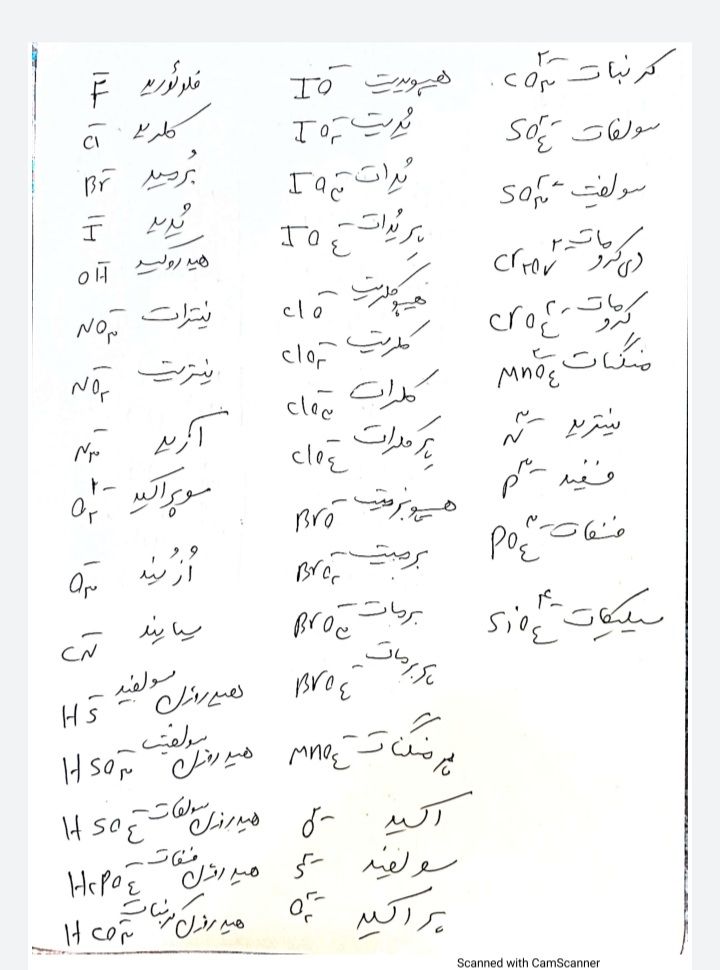 کربنات CO۳۲−
سولفات SO۴۲−
سولفیت SO۳۲−
دی کرومات Cr۲O۷۲−
کرومات CrO۴۲−
منگنات MnO۴۲−
نیترید N۳−
فسفید P۳−
فسفات PO۴۳−
سیلیکات SiO۴۴−
هیپویدیت IO−
یُدیت IO۲−
یُدات IO۳−
پریُدات IO۴−
هیپوکلریت ClO−
کلریت ClO۲−
کلرات ClO۳−
پرکلرات ClO۴−
هیپوبرمیت BrO−
برمیت BrO۲−
برمات BrO۳−
پربرمات BrO۴−
پرمنگنات MnO۴−
اکسید O۲−
سولفید S۲−
پراکسید O۲۲−
فلوئورید F−
کلرید Cl−
بُرمید Br−
یُدید I−
هیدروکسید OH−
نیترات NO۳−
نیتریت NO۲−
آزید N۳−
سوپراکسید O۲۱−
اُزُنید O۳−
سیانید CN−
هیدروژن سولفید HS−
هیدروژن سولفیت HSO۳−
هیدروژن سولفات HSO۴−
هیدروژن فسفات H۲PO۴−
هیدروژن کربنات HCO۳−
Scanned with CamScanner